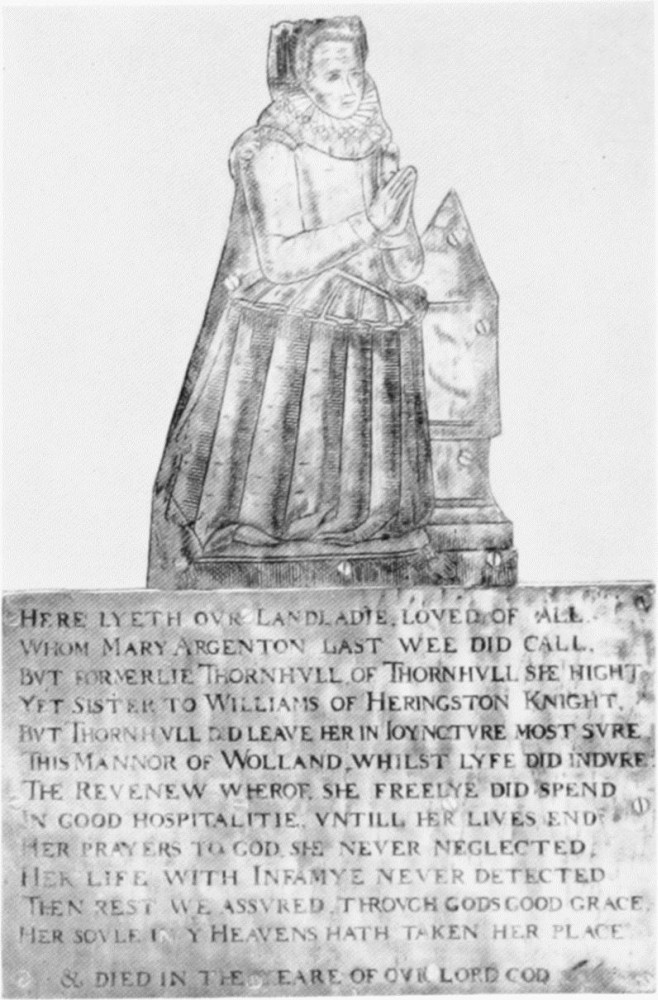 HERE LYETH OVR LANDLADIE, LOVED OF ALL.
WHOM MARY ARGENTON LAST WEE DID CALL,
BVT FORMERLIE THORNHVLL, OF THORNHVLL SHE HIGHT
YET SISTER TO WILLIAMS OF HERINGSTON KNIGHT,
BVT THORNHVLL DID LEAVE HER IN IOYNCTVRE MOST SVRE
THIS MANNOR OF WOLLAND, WHILST LYFE DID INDVRE
THE REVENEW WHEROF, SHE FREELYE DID SPEND
IN GOOD HOSPITALITIE, VNTILL HER LIVES END
HER PRAYERS TO GOD SHE NEVER NEGLECTED,
HER LIFE WITH INFAMYE NEVER DETECTED
THEN REST WE ASSVRED, THROVGH GODS GOOD GRACE,
HER SOVLE IN Y HEAVENS HATH TAKEN HER PLACE
& DIED IN THE YEARE OF OVR LORD GOD